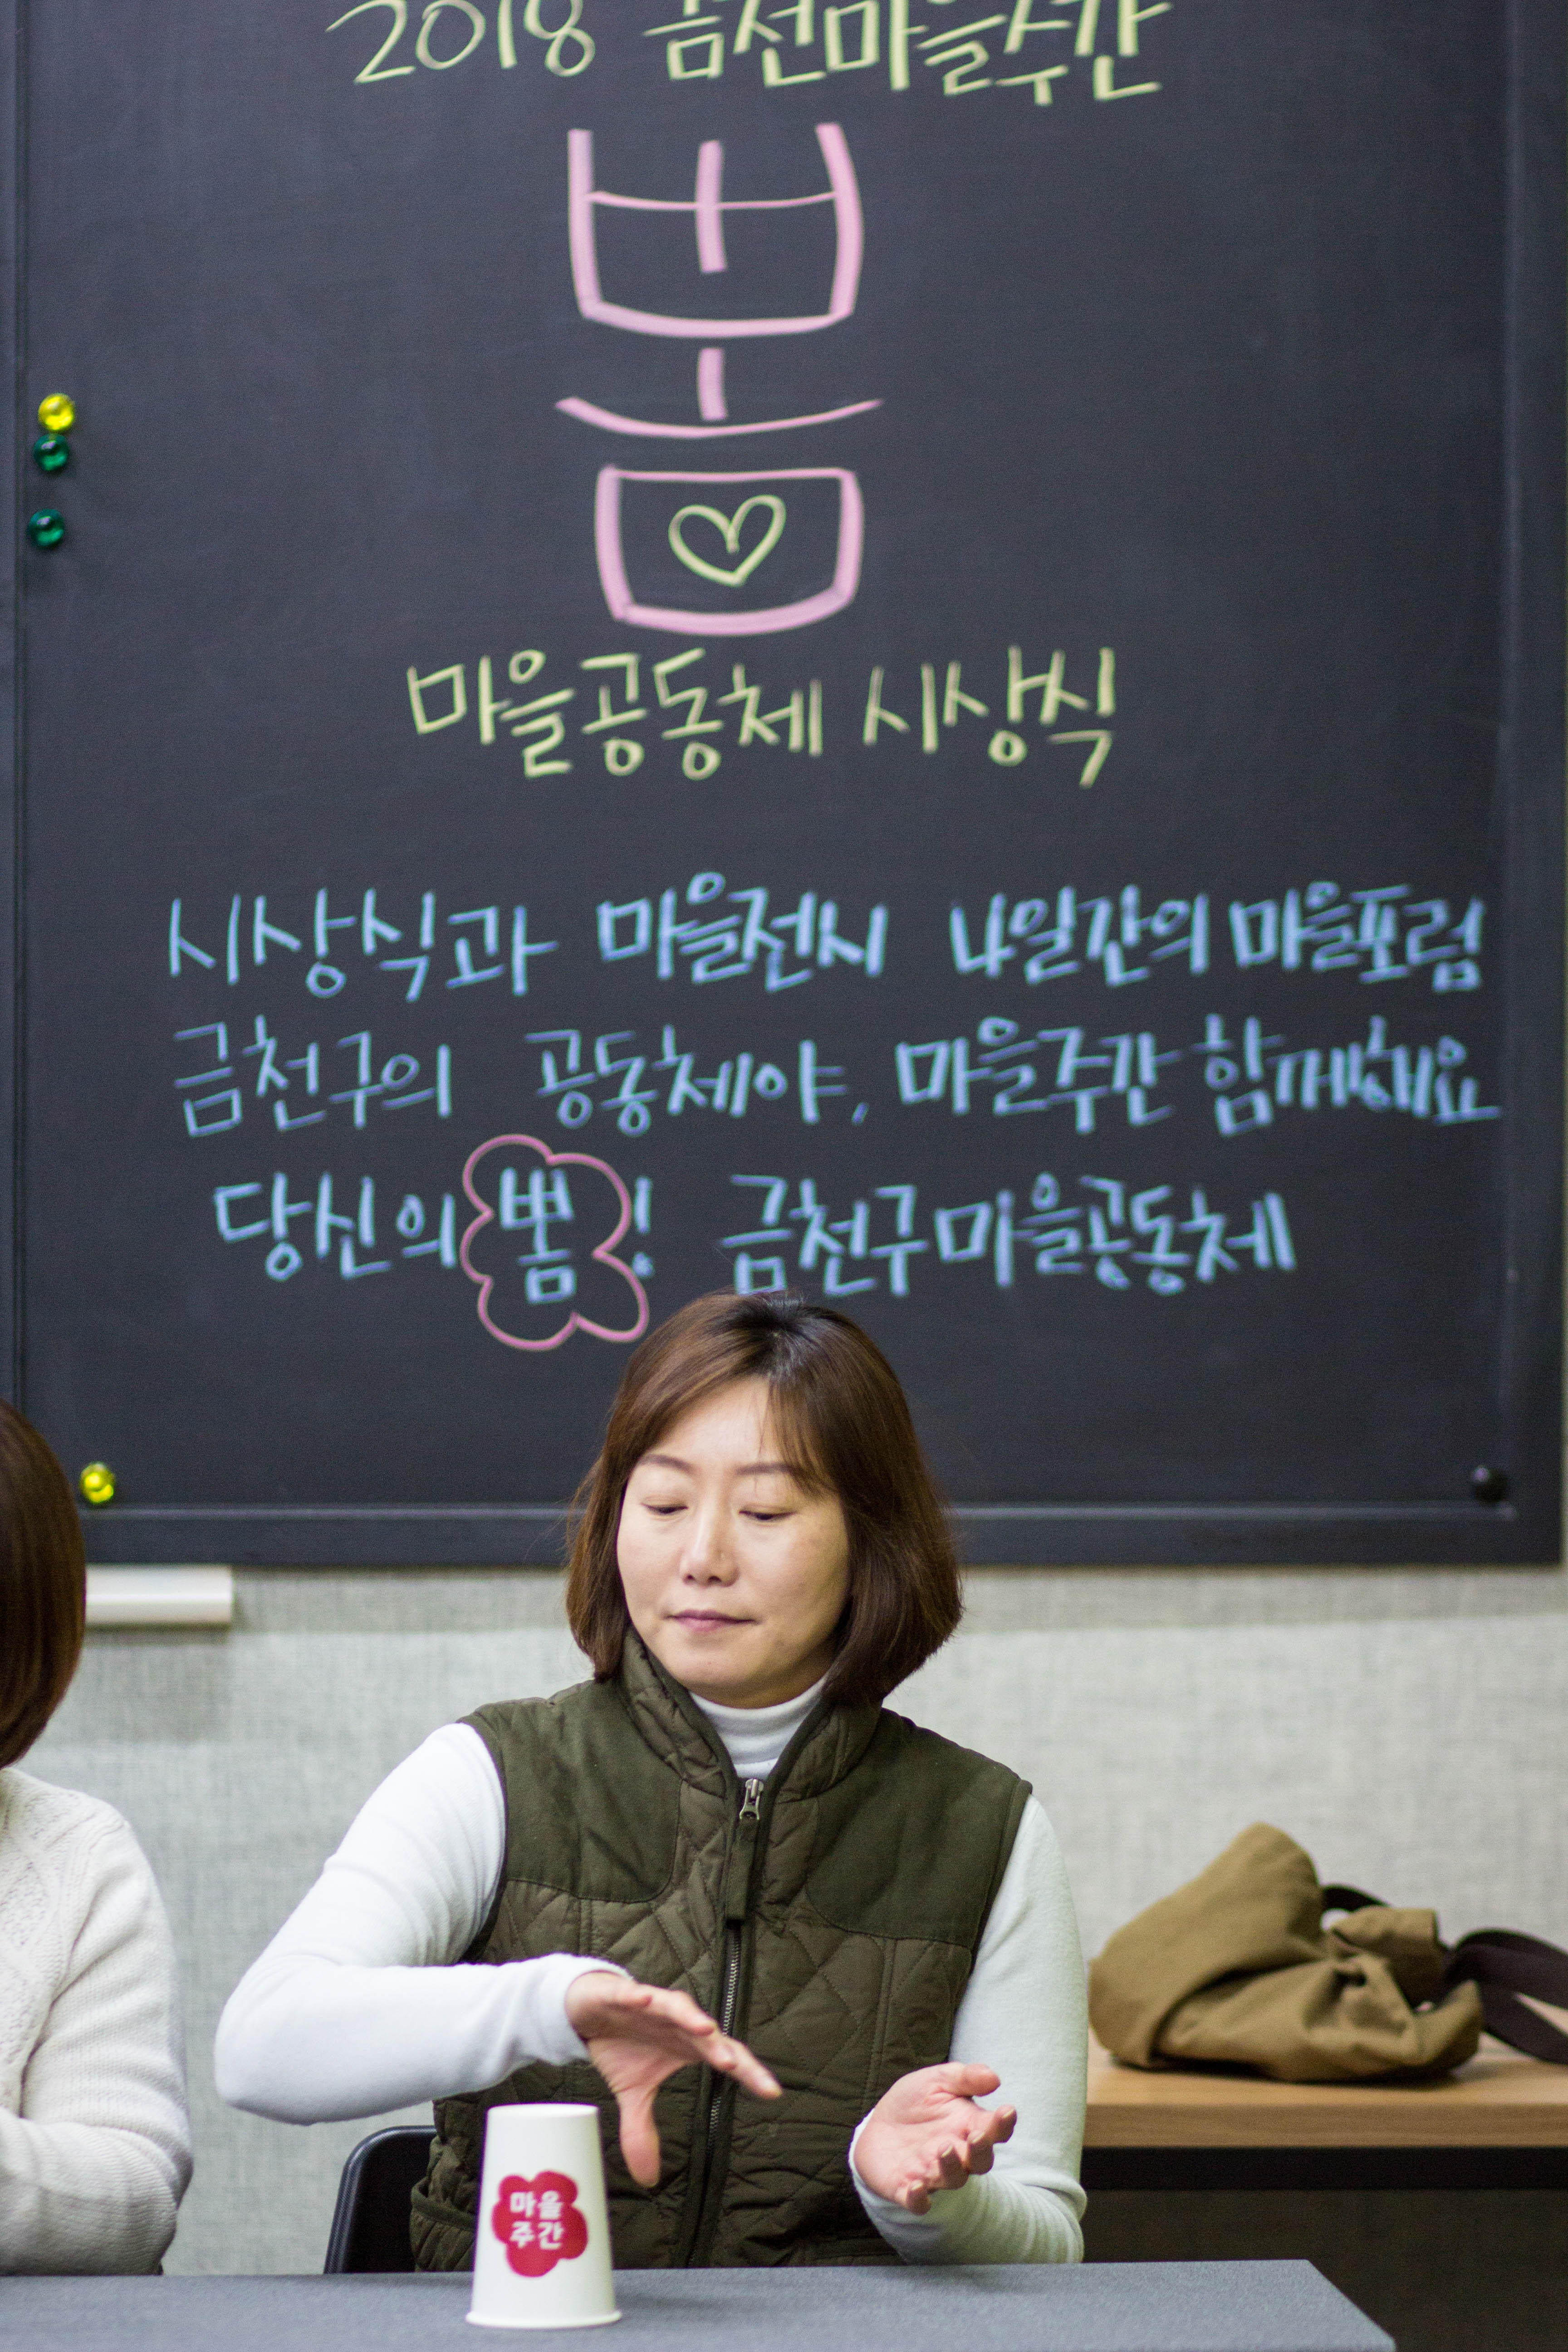 2018 금천마을주간
뽐
마을공동체 시상식
시상식과 마을전시 4일간의 마을포럼
금천구의 공동체야, 마을주간 함께해요
당신의 뽐! 금천구마을공동체
마을
주간